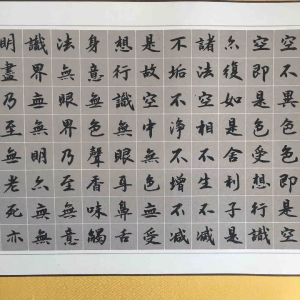 空不異色色即是空
空即是色受想行識
亦復如是舍利子是
諸法空相不生不滅
不垢不淨不增不減
是故空中無色無受
想行識無眼耳鼻舌
身意無色聲香味觸
法無眼界乃至無意
識界無無明亦無無
明盡乃至無老死亦